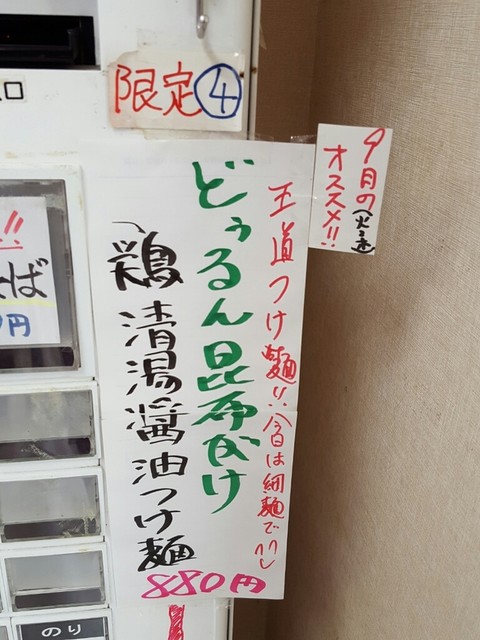 限定④
9月の(火を速)
オススメ!!
王道つけ麺!!今日は細麺で
どぅるん昆布だけ
鶏清湯醤油つけ麺
880円
ば
円
のり